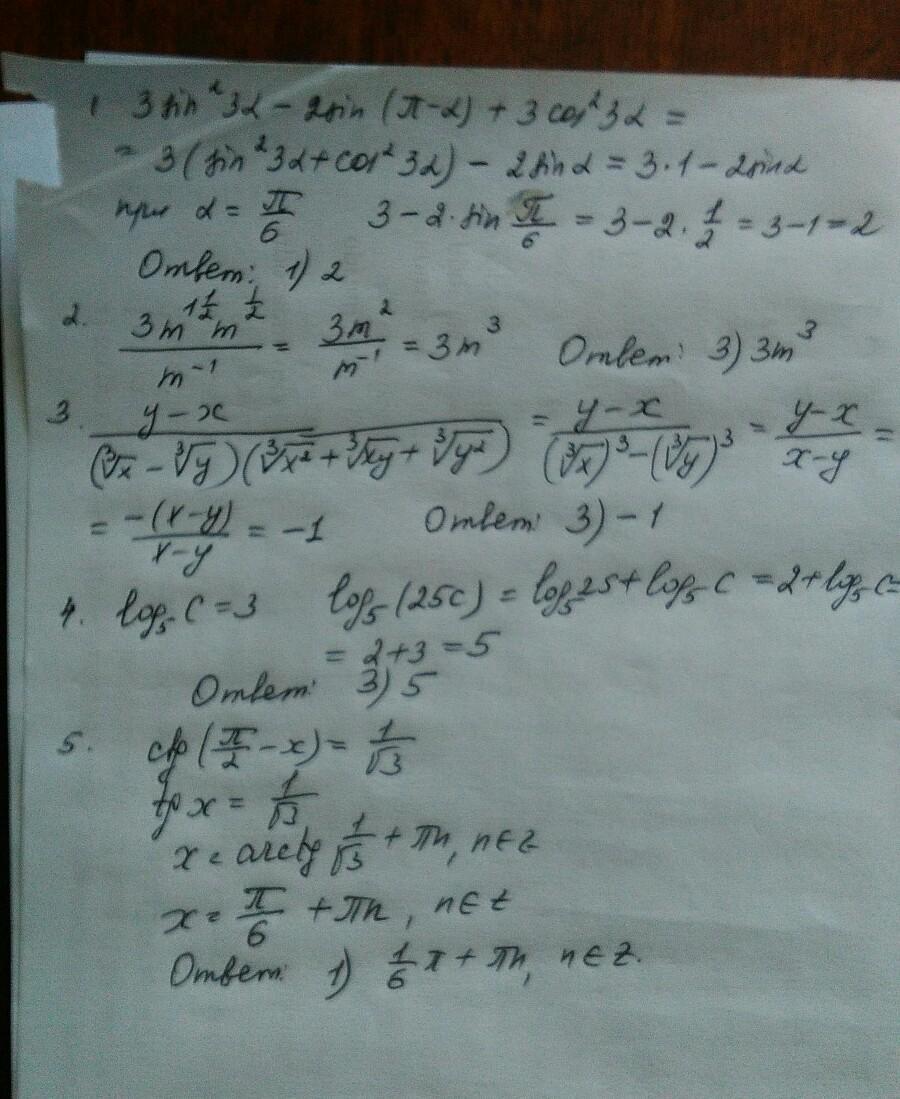 1 3 sin²3α − 2sin (π−α) + 3 cos²3α =
= 3 (sin²3α + cos²3α) − 2 sin α = 3·1 − 2sinα
при α = π/6 3 − 2·sin π/6 = 3 − 2·1/2 = 3−1 = 2
Ответ: 1) 2
2. 3m^(1 1/2) m^(1/2) / m⁻¹ = 3m² / m⁻¹ = 3m³ Ответ: 3) 3m³
3. (y − x) / ((∛x − ∛y)(∛x² + ∛xy + ∛y²)) = (y − x) / ((∛x)³ − (∛y)³) = (y−x) / (x−y) =
= −(x−y) / (x−y) = −1 Ответ: 3) −1
4. log₅ C = 3 log₅ (25C) = log₅25 + log₅ C = 2 + log₅ C =
= 2+3 = 5
Ответ: 3) 5
5. ctg (π/2 − x) = 1/√3
tg x = 1/√3
x = arctg 1/√3 + πn, n∈z
x = π/6 + πn, n∈z
Ответ: 1) 1/6 π + πn, n∈Z.